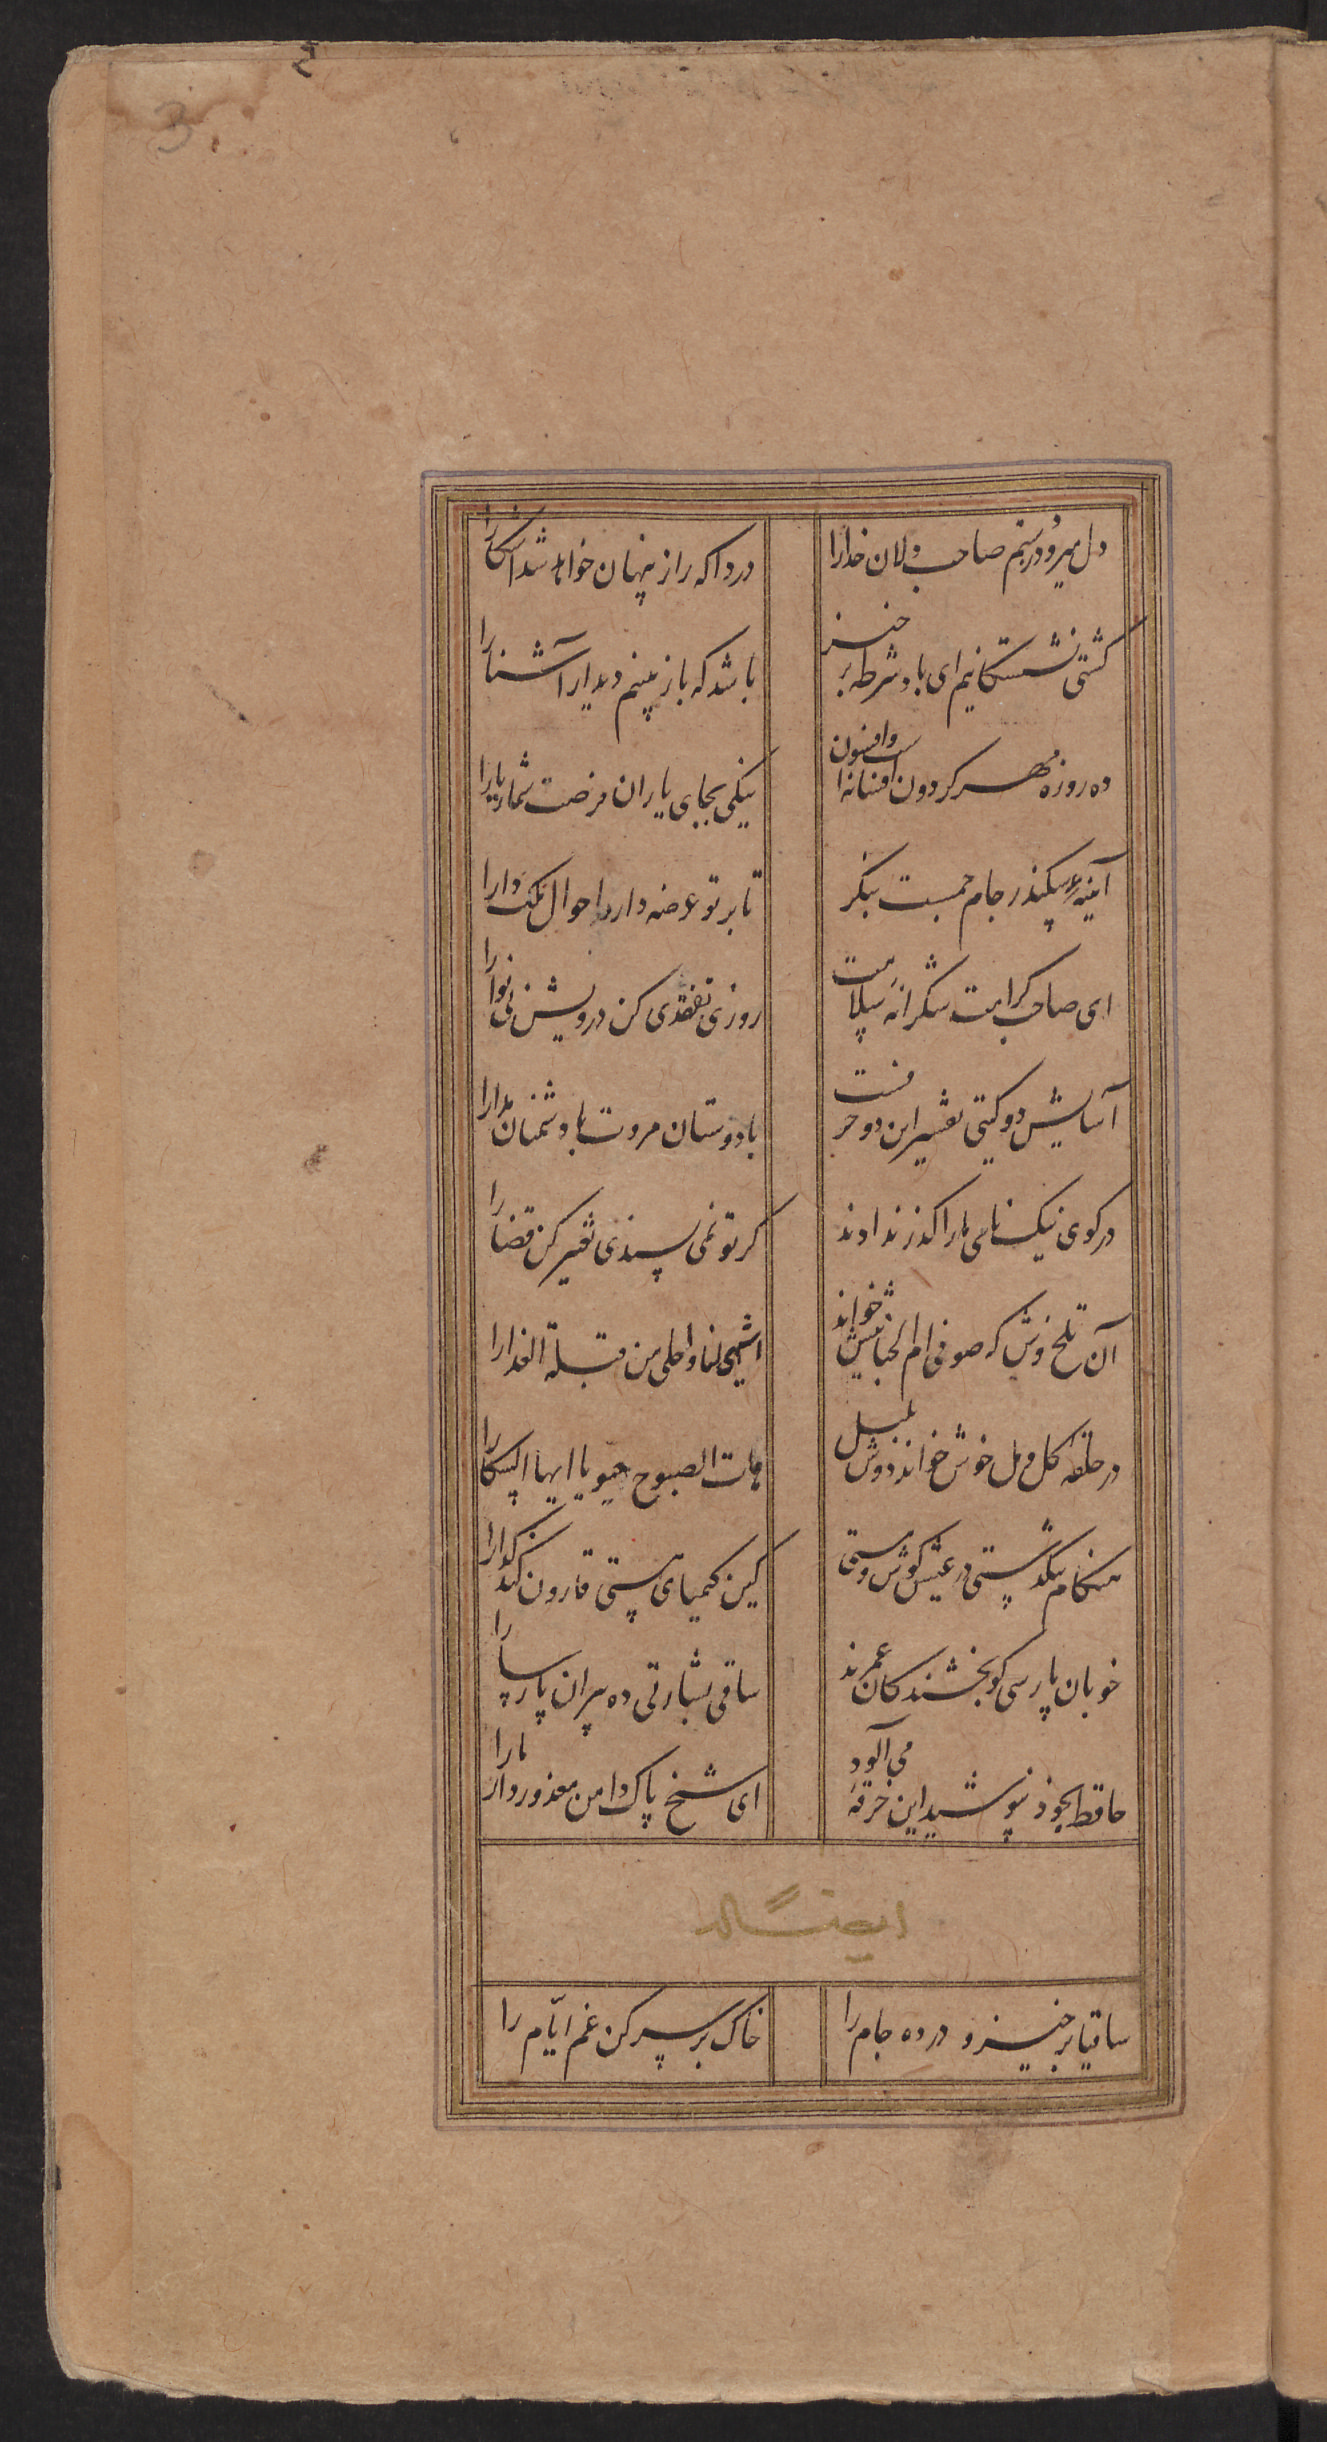 3
دل میرود ز دستم صاحب دلان خدارا
دردا که راز پنهان خواهد شد آشکارا
کشتی نشستکانیم ای باد شرطه برخیز
باشد که باز بینیم دیدار آشنا را
ده روزه مهر کردون افسانه است و افسون
نیکی بجای یاران فرصت شمار یارا
آینهٔ سکندر جام جمست بنکر
تا بر تو عرضه دارد احوال ملک دارا
ای صاحب کرامت شکرانه سلامت
روزی تفقدی کن درویش بی نوا را
آسایش دو کیتی تفسیر این دو حرفست
با دوستان مروت با دشمنان مدارا
در کوی نیک نامی ما را کذر ندادند
کر تو نمی پسندی تغییر کن قضا را
آن تلخ وش که صوفی ام الخبائثش خواند
اشهی لنا و احلی من قبلة العذارا
در حلقه کل و مل خوش خواند دوش بلبل
هات الصبوح هیوا یا ایها السکارا
هنکام تنکدستی در عیش کوش و مستی
کین کیمیای هستی قارون کند کدا را
خوبان پارسی کو بخشندکان عمرند
ساقی بشارتی ده پیران پارسا را
حافظ بخود نپوشید این خرقه می آلود
ای شیخ پاک دامن معذور دار ما را
ایضاً له
ساقیا برخیز و درده جام را
خاک بر سر کن غم ایّام را